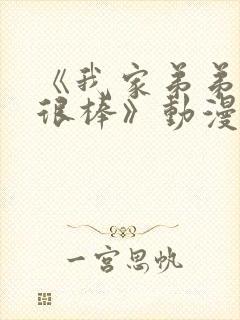 《我家弟弟
很棒》動漫
一宮思帆